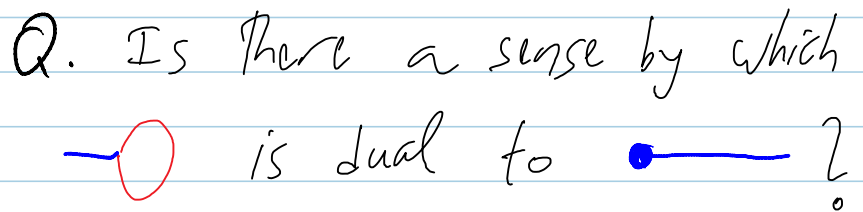 Q. Is there a sense by which
is dual to ?